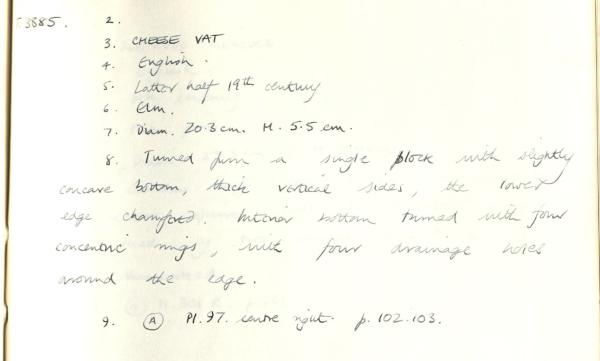 T3885. 2.
3. CHEESE VAT
4. English.
5. Latter half 19th century
6. Elm.
7. Diam. 20.3 cm. H. 5.5 cm.
8. Turned from a single block with slightly
concave bottom, thick vertical sides, the lower
edge chamfered. Interior bottom turned with four
concentric rings, with four drainage holes
around the edge.
9. A Pl. 97. centre right. p. 102.103.